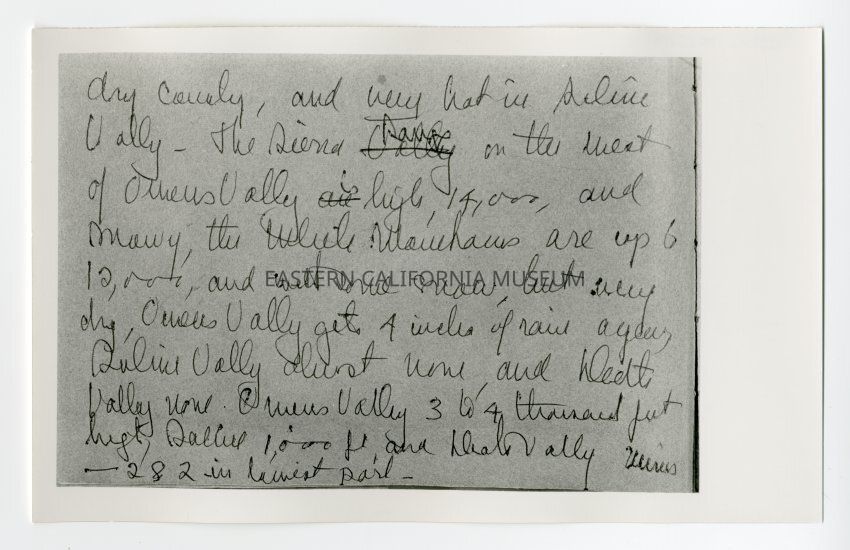 dry County, and very hot in Saline
Vally – The Sierra ~~Vally~~ Range on the West
of Owens Vally ~~are~~ is high, 14,000, and
snowy, the White Mountains are up to
13,000, and with some snow, but very
EASTERN CALIFORNIA MUSEUM
dry, Owens Vally gets 4 inches of rain a year,
Saline Vally almost none, and Death
Valley none. Owens Valley 3 to 4 thousand feet
high, Saline 1,000 ft, and Death Vally minus
– 282 in lowest part –